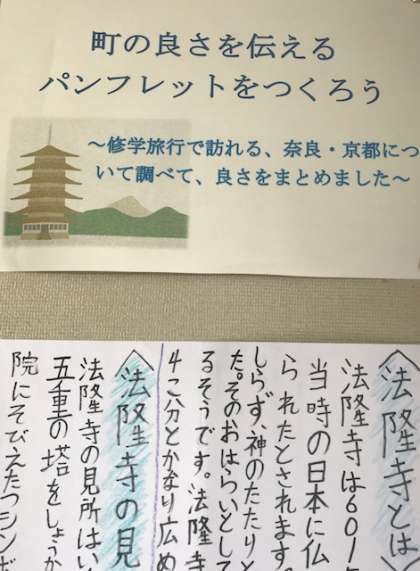 町の良さを伝える
パンフレットをつくろう
～修学旅行で訪れる、奈良・京都につ
いて調べて、良さをまとめました～
〈法隆寺とは〉
法隆寺は601年
当時の日本に仏
られたとされます。
しらず、神のたたりと
た。そのおはらいとして
るそうです。法隆寺
4こ分とかなり広め
〈法隆寺の見
法隆寺の見所はい
五重の塔をしょうか
院にそびえたつシンボ